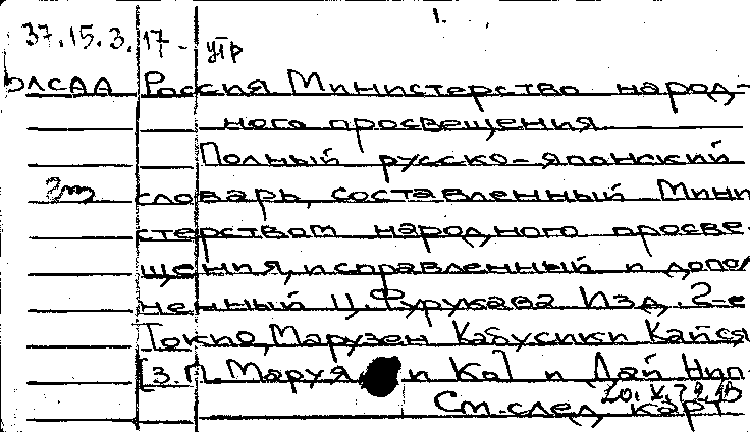 1.
37.15.3.17- утр
БЛСАА Россия Министерство народ-
ного просвещения
Полный русско-японский
словарь, составленный Мини
стерством народного просве-
щения, исправленный и допол
ненный Ц. Фурукава Изд. 2-е
Токио, Марузен Кабусики Кайся
[З.П. Маруя и Ко] и Дай Нип-
См. след карт